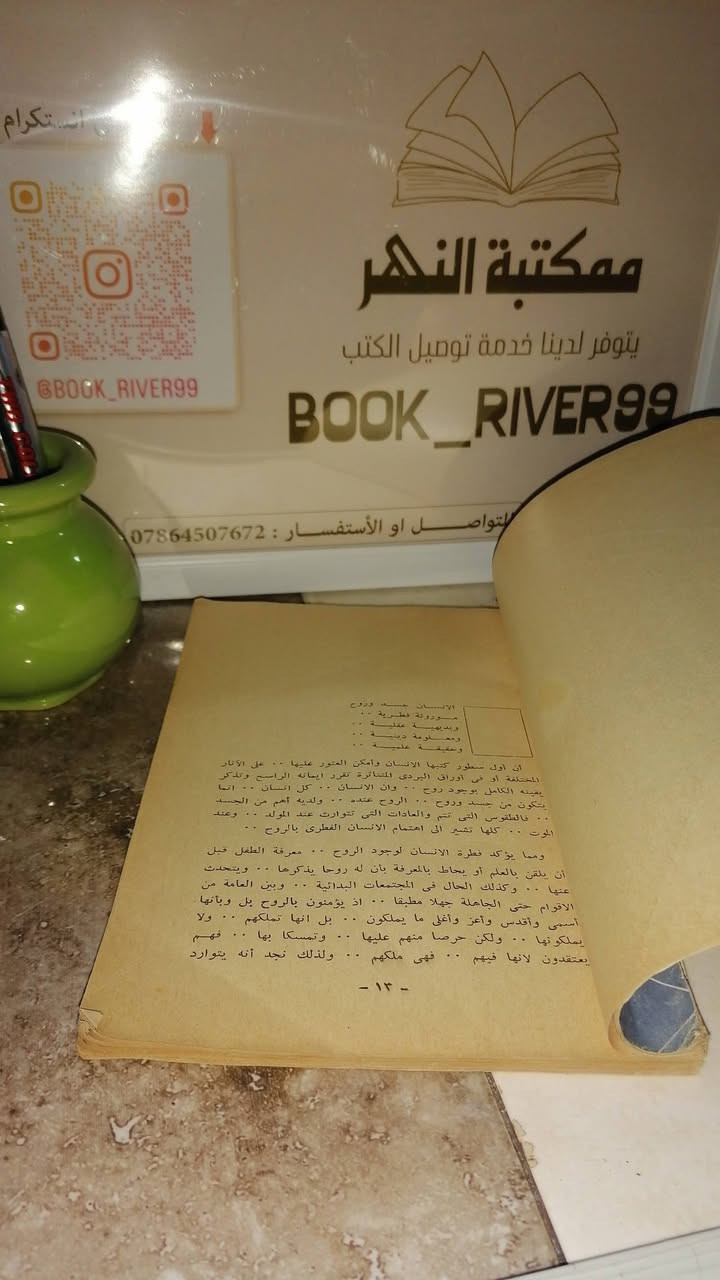 انستكرام
@BOOK_RIVER99
مكتبة النهر
يتوفر لدينا خدمة توصيل الكتب
BOOK_RIVER99
للتواصـــل او الأستفســـار : 07864507672
الانسان جسد وروح
مـوروثة فطـرية ٠٠
وبديهيـة عقليـة ٠٠
ومعـلومة دينيـة ٠٠
وحقيقـة علميـة ٠٠
ان أول سطور كتبها الانسان وأمكن العثور عليها ٠٠ على الآثار
المختلفة أو فى أوراق البردى المتناثرة تقرر ايمانه الراسخ وتذكر
يقينه الكامل بوجود روح ٠٠ وان الانسان ٠٠ كل انسان ٠٠ انما
يتكون من جسد وروح ٠٠ الروح عنده ٠٠ ولديه أهم من الجسد
٠٠ فالطقوس التى تتم والعادات التى تتوارث عند المولد ٠٠ وعند
الموت ٠٠ كلها تشير الى اهتمام الانسان الفطرى بالروح ٠٠
ومما يؤكد فطرة الانسان لوجود الروح ٠٠ معرفة الطفل قبل
أن يلقن بالعلم أو يحاط بالمعرفة بأن له روحا يذكرها ٠٠ ويتحدث
عنها ٠٠ وكذلك الحال فى المجتمعات البدائية ٠٠ وبين العامة من
الاقوام حتى الجاهلة جهلا مطبقا ٠٠ اذ يؤمنون بالروح بل وبأنها
أسمى وأقدس وأعز وأغلى ما يملكون ٠٠ بل انها تملكهم ٠٠ ولا
يملكونها ٠٠ ولكن حرصا منهم عليها ٠٠ وتمسكا بها ٠٠ فهـم
يعتقدون لانها فيهم ٠٠ فهى ملكهم ٠٠ ولذلك نجد أنه يتوارد
- ١٣ -